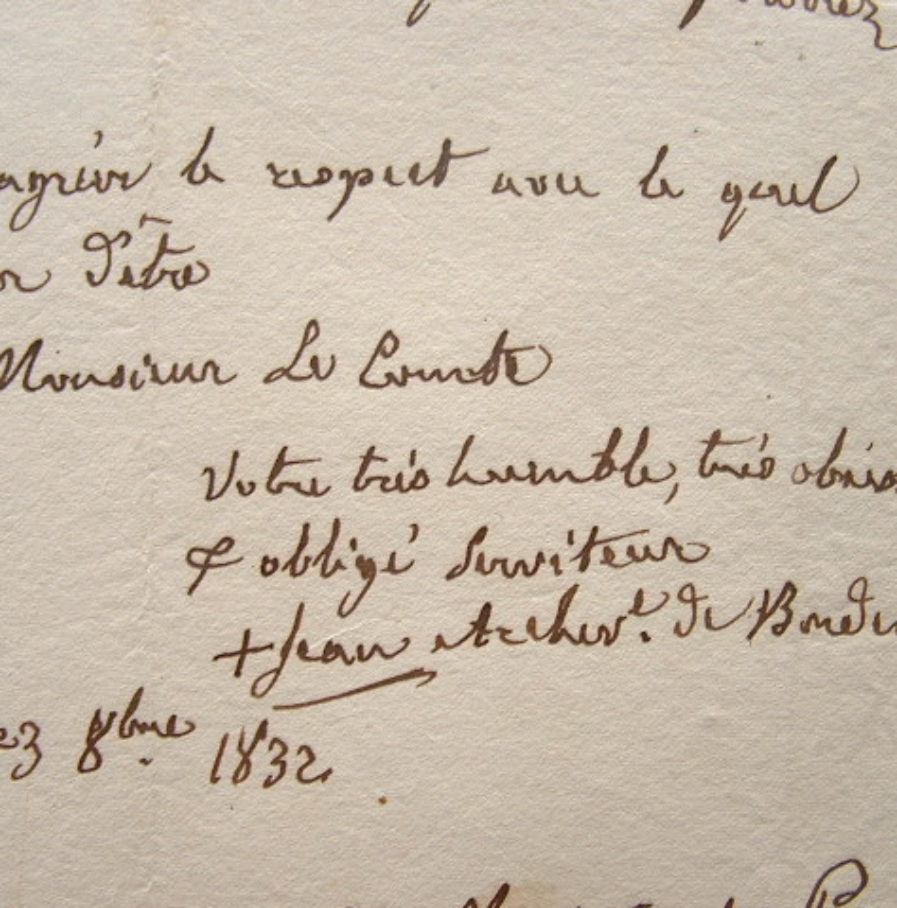 agréer le respect avec le quel
d'être
Monsieur Le Comte
Votre très humble, très obéis
& obligé Serviteur
+ Jean Archev^e. de Borde
8bre 1832.